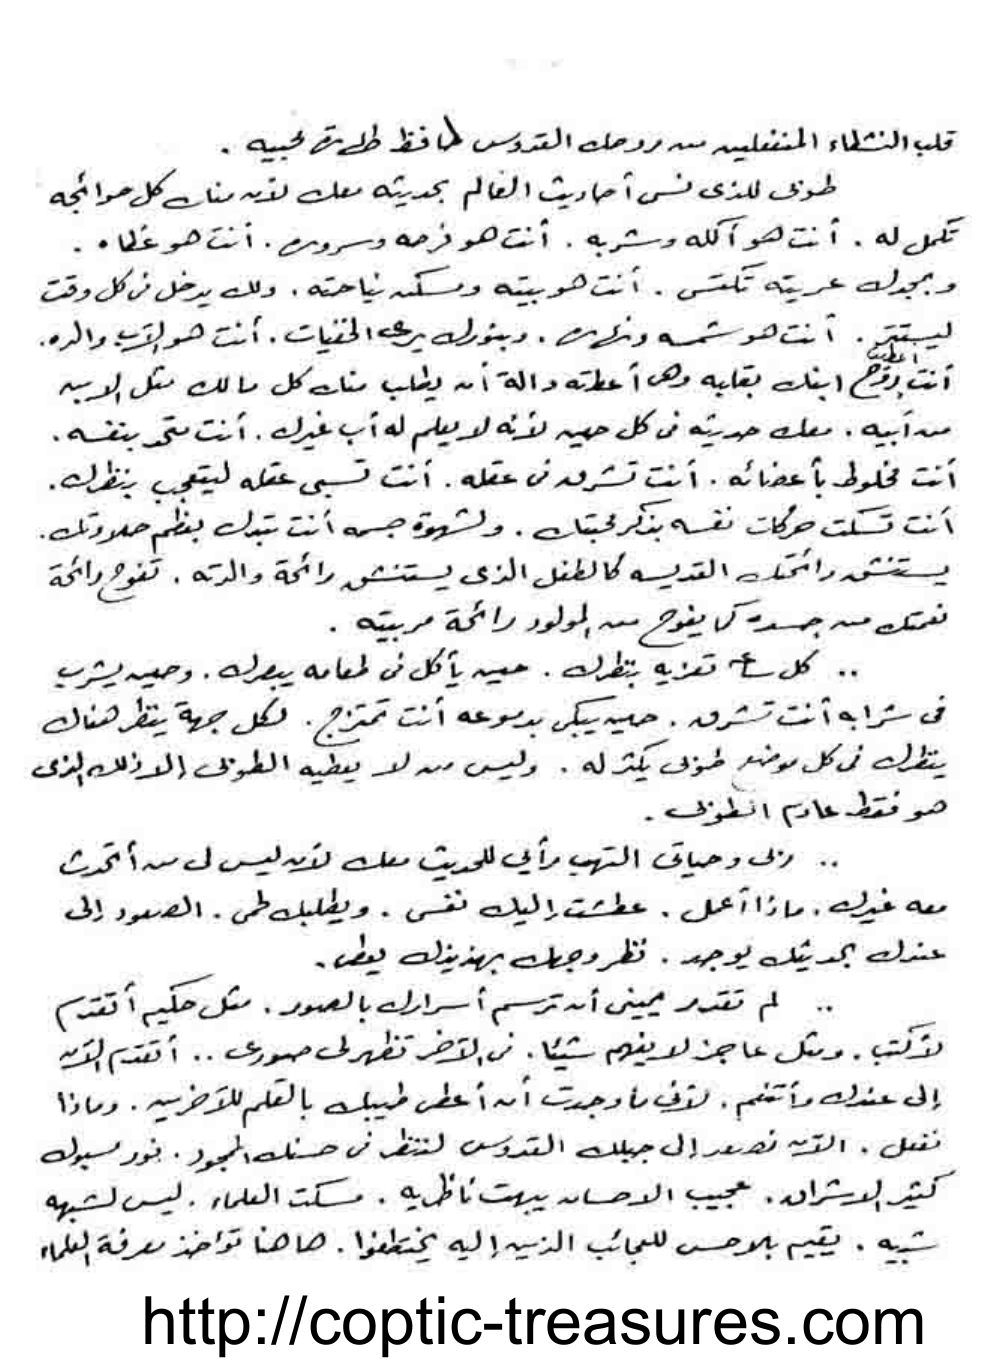 قلب النشطاء المنفعلين من روحك القدوس حافظ طهارة محبيه .
طوبى للذى نسى أحاديث العالم بحديثه معك لأن منك كل حوائجه
تكمل له . أنت هو أكله وشربه . أنت هو فرحه وسروره . أنت هو غطاه .
وبمجدك عريته تكتسى . أنت هو بيته ومسكن نياحته . ولك يدخل فى كل وقت
ليستتر . أنت هو شمسه ونهاره . وبنورك يرى الخفيات . أنت هو الآب والده .
أعطيت
أنت روح ابنك بقلبه وهى أعطته دالة أن يطلب منك كل مالك مثل الابن
من أبيه . معك حديثه فى كل حين لأنه لا يعلم له أب غيرك . أنت متحد بنفسه .
أنت مخلوط بأعضائه . أنت تشرق فى عقله . أنت تسبى عقله ليتعجب بنظرك .
أنت تسكت حركات نفسه بذكر محبتك . ولشهوة جسمه أنت تبدل بعظم حلاوتك .
يستنشق رائحتك القديسه كالطفل الذى يستنشق رائحة والدته . تفوح رائحة
نعمتك من جسده كما يفوح من المولود رائحة مربيته .
.. كل ساعة تعزيه بنظرك . حين يأكل فى طعامه يبصرك . وحين يشرب
فى شرابه أنت تشرق . حين يبكى بدموعه أنت تمتزج . لكل جهة ينظر هناك
ينظرك فى كل موضع طوبى يكثر له . وليس من لا يعطيه الطوبى إلا ذلك الذى
هو فقط عادم الطوبى .
.. ربى وحياتى التهب رأيى للحديث معك لأن ليس لى من أتحدث
معه غيرك . ماذا أعمل . عطشت إليك نفسى . ويطلبك لحمى . الصعود إلى
عندك بحديثك يوجد . نظر وجهك بهذيذك يعطى .
.. لم تقدر يمينى أن ترسم أسرارك بالصور . مثل حكيم أتقدم
لأكتب . ومثل عاجز لا يفهم شيئا . فى الآخر تظهر لى صورى .. أتقدم الآن
إلى عندك وأتنعم . لأنى ما وجدت أن أعطى طيبك بالقلم للآخرين . وماذا
نفعل . الآن نصعد إلى جبلك القدوس لننظر فى حسنك الممجود . نور مسبوك
كثير الاشراق . عجيب الاحسان يبهت ناظريه . مسكت العلماء . ليس لشبهه
شبيه . يقيم بلا حس للعجائب الذين إليه يختطفوا . ها هنا تؤاخذ معرفة العلماء
http://coptic-treasures.com